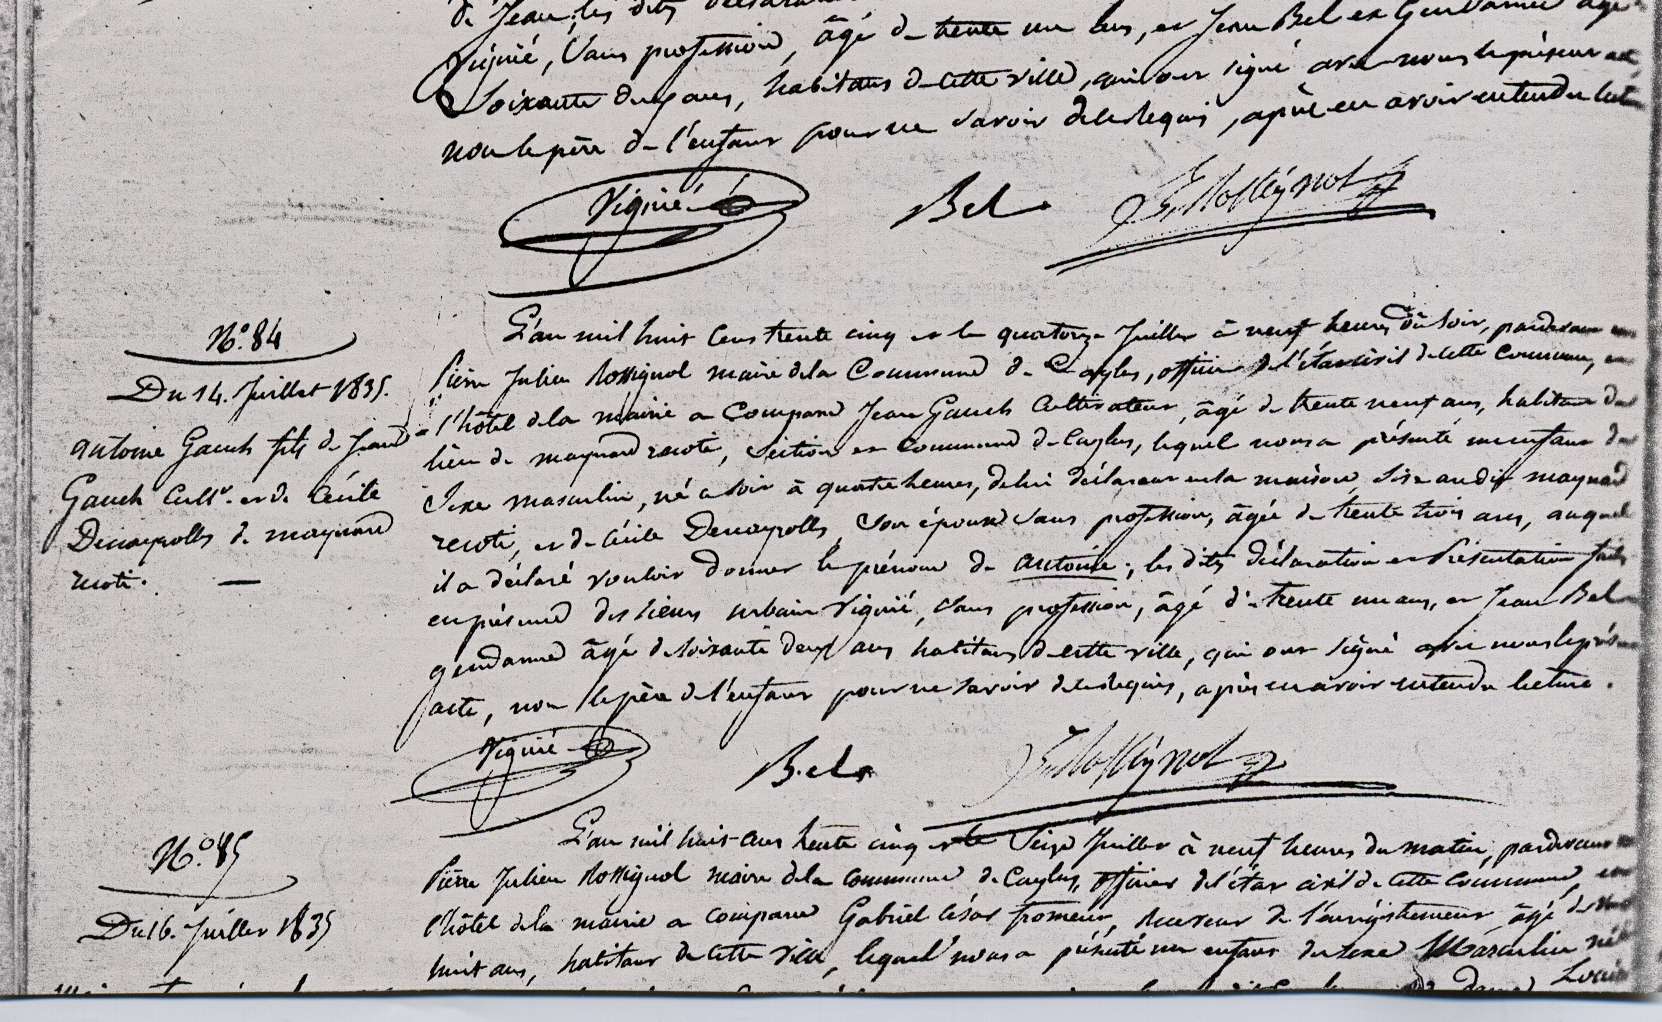 de Jean, les dits
Viguié, sans profession, âgé de trente un ans, et Jean Bel ex Gendarme âgé
soixante deux ans, habitans de cette ville, qui ont signé avec nous le présent acte,
non le père de l'enfant pour ne savoir de ce requis, après en avoir entendu lect
Viguié
Bel
Rossignol
N.º 84
Du 14. Juillet 1835.
antoine Gauch fils de Jean
Gauch Cultr. et de Cécile
Decayrolls de maynard
recoti.
L'an mil huit Cens trente cinq et le quatorze Juillet à neuf heures du soir, pardevant nous
Pierre Julien Rossignol maire de la Commune de Caylus, officier de l'état civil de cette Commune, en
l'hôtel de la mairie a Comparu Jean Gauch Cultivateur, âgé de trente neuf ans, habitant du
lieu de maynard recoti, section et Commune de Caylus, lequel nous a présenté un enfant du
sexe masculin, né a soir à quatre heures, de lui déclarant en sa maison sise au dit maynard
recoti, et de Cécile Decayrolls, son épouse sans profession, âgée de trente trois ans, auquel
il a déclaré vouloir donner le prénom de antoine; les dites déclaration et présentation faites
en présence des sieurs urbain Viguié, sans profession, âgé de trente un ans, et Jean Bel
gendarme âgé de soixante deux ans habitans de cette ville, qui ont signé avec nous le présent
acte, non le père de l'enfant pour ne savoir de ce requis, après en avoir entendu lecture.
Viguié
Bel
Rossignol
N.º 85
Du 16. Juillet 1835
L'an mil huit cens trente cinq et le seize Juillet à neuf heures du matin, pardevant nous
Pierre Julien Rossignol maire de la commune de Caylus, officier de l'état civil de cette commune, en
l'hôtel de la mairie a comparu Gabriel César fromen, receveur de l'enregistrement âgé de
huit ans, habitant de cette ville, lequel nous a présenté un enfant du sexe Masculin né